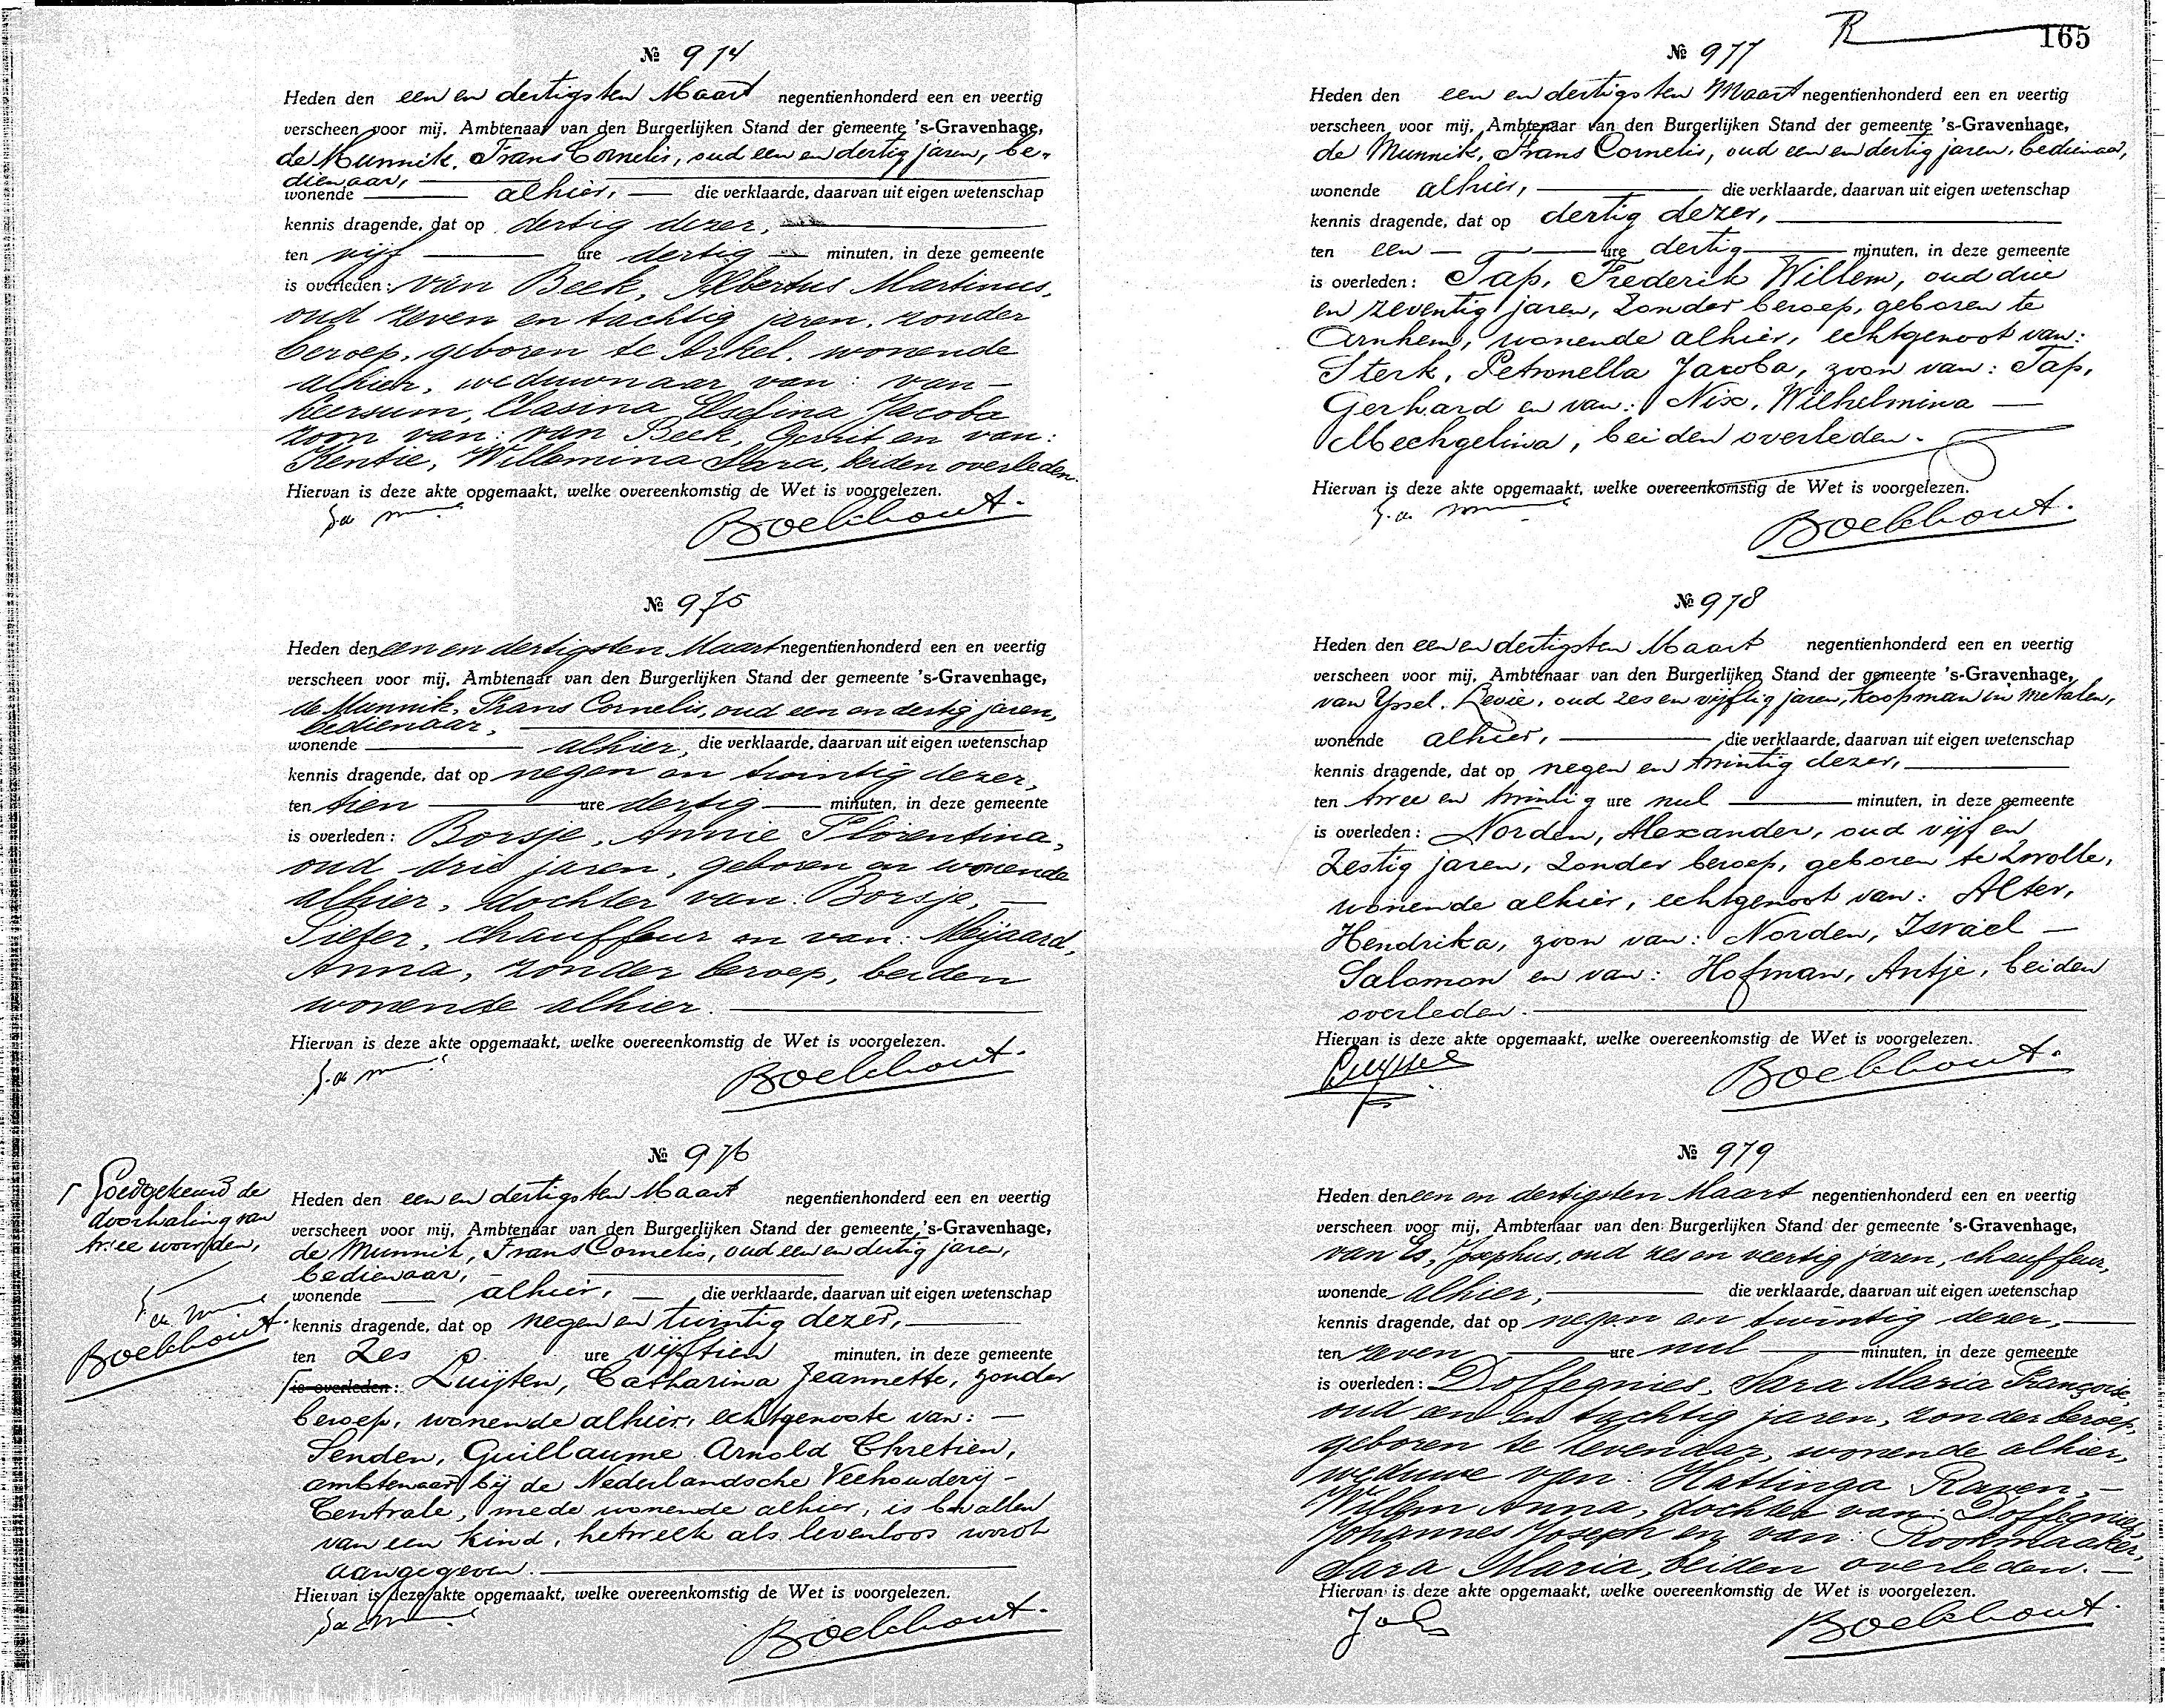 № 974
Heden den een en dertigsten Maart negentienhonderd een en veertig
verscheen voor mij, Ambtenaar van den Burgerlijken Stand der gemeente 's-Gravenhage,
de Munnik, Frans Cornelis, oud een en dertig jaren, be-
dienaar,
wonende alhier, die verklaarde, daarvan uit eigen wetenschap
kennis dragende, dat op dertig dezer,
ten vijf ure dertig minuten, in deze gemeente
is overleden: van Beek, Albertus Martinus,
oud zeven en tachtig jaren, zonder
beroep, geboren te Arkel, wonende
alhier, weduwnaar van: van-
Heersum, Clasina Elsefina Jacoba
zoon van: van Beek, Gerrit en van:
Kentie, Willemina Sara, beiden overleden.
Hiervan is deze akte opgemaakt, welke overeenkomstig de Wet is voorgelezen.
Boekhout.
№ 975
Heden den een en dertigsten Maart negentienhonderd een en veertig
verscheen voor mij, Ambtenaar van den Burgerlijken Stand der gemeente 's-Gravenhage,
de Munnik, Frans Cornelis, oud een en dertig jaren,
bedienaar,
wonende alhier, die verklaarde, daarvan uit eigen wetenschap
kennis dragende, dat op negen en twintig dezer,
ten tien ure dertig minuten, in deze gemeente
is overleden: Borsje, Annie Florentina,
oud drie jaren, geboren en wonende
alhier, dochter van: Borsje,
Piefer, chauffeur en van: Meijaard,
Anna, zonder beroep, beiden
wonende alhier.
Hiervan is deze akte opgemaakt, welke overeenkomstig de Wet is voorgelezen.
Boekhout.
№ 976
Goedgekeurd de
doorhaling van
twee woorden,
Boekhout.
Heden den een en dertigsten Maart negentienhonderd een en veertig
verscheen voor mij, Ambtenaar van den Burgerlijken Stand der gemeente 's-Gravenhage,
de Munnik, Frans Cornelis, oud een en dertig jaren,
bedienaar,
wonende alhier, die verklaarde, daarvan uit eigen wetenschap
kennis dragende, dat op negen en twintig dezer,
ten zes ure vijftien minuten, in deze gemeente
is overleden: Luijten, Catharina Jeannette, zonder
beroep, wonende alhier, echtgenoote van:
Senden, Guillaume Arnold Chretien,
ambtenaar bij de Nederlandsche Veehouderij-
Centrale, mede wonende alhier, is bevallen
van een kind, hetwelk als levenloos wordt
aangegeven.
Hiervan is deze akte opgemaakt, welke overeenkomstig de Wet is voorgelezen.
Boekhout.
R 165
№ 977
Heden den een en dertigsten Maart negentienhonderd een en veertig
verscheen voor mij, Ambtenaar van den Burgerlijken Stand der gemeente 's-Gravenhage,
de Munnik, Frans Cornelis, oud een en dertig jaren, bedienaar,
wonende alhier, die verklaarde, daarvan uit eigen wetenschap
kennis dragende, dat op dertig dezer,
ten een ure dertig minuten, in deze gemeente
is overleden: Tap, Frederik Willem, oud drie
en zeventig jaren, zonder beroep, geboren te
Arnhem, wonende alhier, echtgenoot van:
Sterk, Petronella Jacoba, zoon van: Tap,
Gerhard en van: Nix, Wilhelmina
Mechgelina, beiden overleden.
Hiervan is deze akte opgemaakt, welke overeenkomstig de Wet is voorgelezen.
Boekhout.
№ 978
Heden den een en dertigsten Maart negentienhonderd een en veertig
verscheen voor mij, Ambtenaar van den Burgerlijken Stand der gemeente 's-Gravenhage,
van Yssel, Levie, oud zes en vijftig jaren, koopman in metalen,
wonende alhier, die verklaarde, daarvan uit eigen wetenschap
kennis dragende, dat op negen en twintig dezer,
ten twee en twintig ure nul minuten, in deze gemeente
is overleden: Norden, Alexander, oud vijf en
zestig jaren, zonder beroep, geboren te Zwolle,
wonende alhier, echtgenoot van: Alter,
Hendrika, zoon van: Norden, Israël
Salomon en van: Hofman, Antje, beiden
overleden.
Hiervan is deze akte opgemaakt, welke overeenkomstig de Wet is voorgelezen.
Boekhout.
№ 979
Heden den een en dertigsten Maart negentienhonderd een en veertig
verscheen voor mij, Ambtenaar van den Burgerlijken Stand der gemeente 's-Gravenhage,
van Es, Josephus, oud zes en veertig jaren, chauffeur,
wonende alhier, die verklaarde, daarvan uit eigen wetenschap
kennis dragende, dat op negen en twintig dezer,
ten zeven ure nul minuten, in deze gemeente
is overleden: Doffegnies, Sara Maria Françoise,
oud een en tachtig jaren, zonder beroep,
geboren te Zevenaar, wonende alhier,
weduwe van: Hattinga Raven,
Willem Anna, dochter van: Doffegnies,
Johannes Joseph en van: Rookmaaker,
Sara Maria, beiden overleden.
Hiervan is deze akte opgemaakt, welke overeenkomstig de Wet is voorgelezen.
Boekhout.